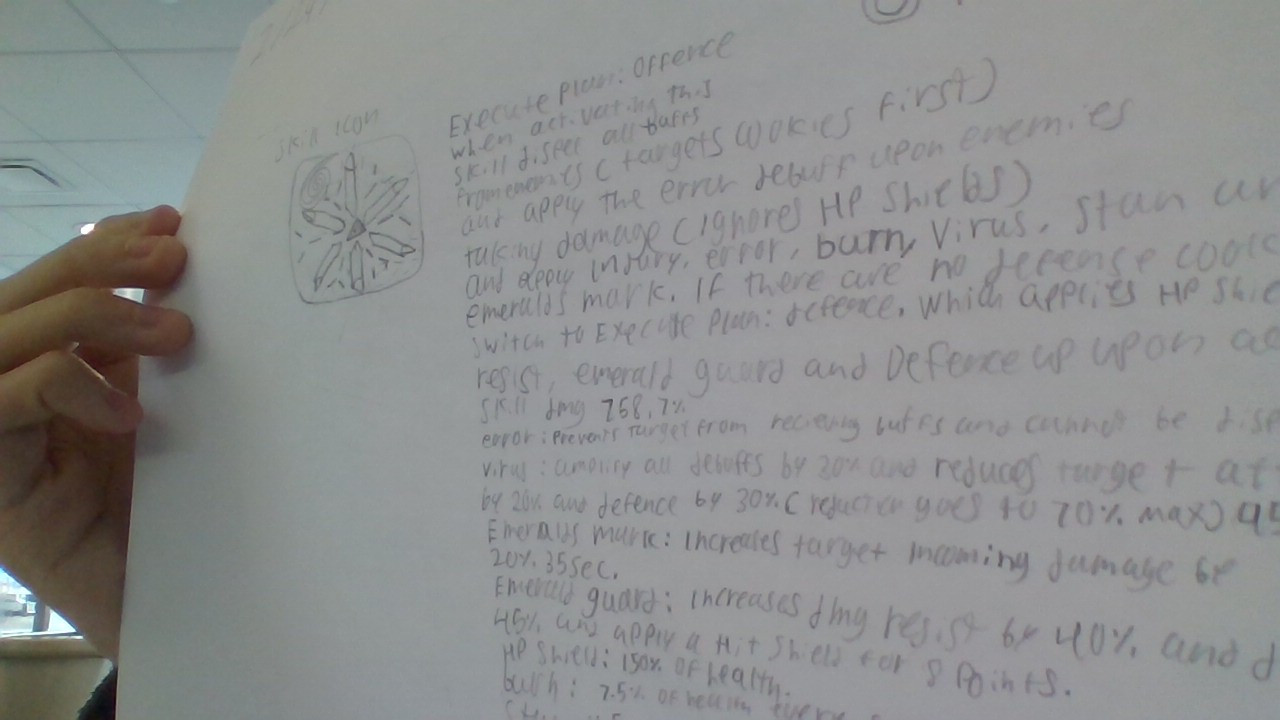 Skill Icon
Execute Plan: Offence
when activating this
skill dispel all buffs
from enemies (targets cookies first)
and apply the error debuff upon enemies
taking damage (ignores HP Shields)
and apply injury, error, burn, Virus, stun
emeralds mark. If there are no defense
switch to Execute Plan: defence, which applies HP
resist, emerald guard and Defence up upon
skill dmg 768.7%
error: prevents target from buffs and cannot be
Virus: amplify all debuffs by 20% and reduces target
by 20% and defence by 30% (reduction goes to 70% max)
Emeralds mark: increases target incoming damage be
20%. 35sec.
Emerald guard: increases dmg resist by 40% and
45% and apply a Hit shield for 8 Points.
HP Shield: 150% of health.
burn: 7.5% of health every